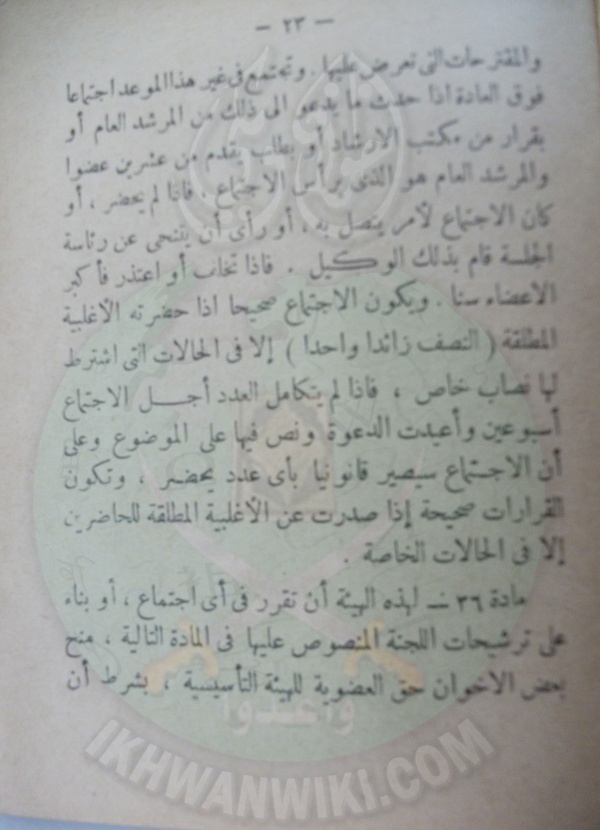 — ٢٣ —
والمقترحات التى تعرض عليها. وتجتمع فى غير هذا الموعد اجتماعا
فوق العادة اذا حدث ما يدعو الى ذلك من المرشد العام أو
بقرار من مكتب الارشاد أو بطلب يقدم من عشرين عضوا
والمرشد العام هو الذى يرأس الاجتماع، فاذا لم يحضر، أو
كان الاجتماع لأمر يتصل به، أو رأى أن يتنحى عن رئاسة
الجلسة قام بذلك الوكيل. فاذا تخلف أو اعتذر فأكبر
الاعضاء سنا. ويكون الاجتماع صحيحا اذا حضرته الأغلبية
المطلقة (النصف زائدا واحدا) إلا فى الحالات التى اشترط
لها نصاب خاص، فاذا لم يتكامل العدد أجل الاجتماع
أسبوعين وأعيدت الدعوة ونص فيها على الموضوع وعلى
أن الاجتماع سيصير قانونيا بأى عدد يحضر، وتكون
القرارات صحيحة إذا صدرت عن الأغلبية المطلقة للحاضرين
إلا فى الحالات الخاصة.
مادة ٣٦ — لهذه الهيئة أن تقرر فى أى اجتماع، أو بناء
على ترشيحات اللجنة المنصوص عليها فى المادة التالية، منح
بعض الاخوان حق العضوية للهيئة التأسيسية، بشرط أن
وأعدوا
IKHWANWIKI.COM